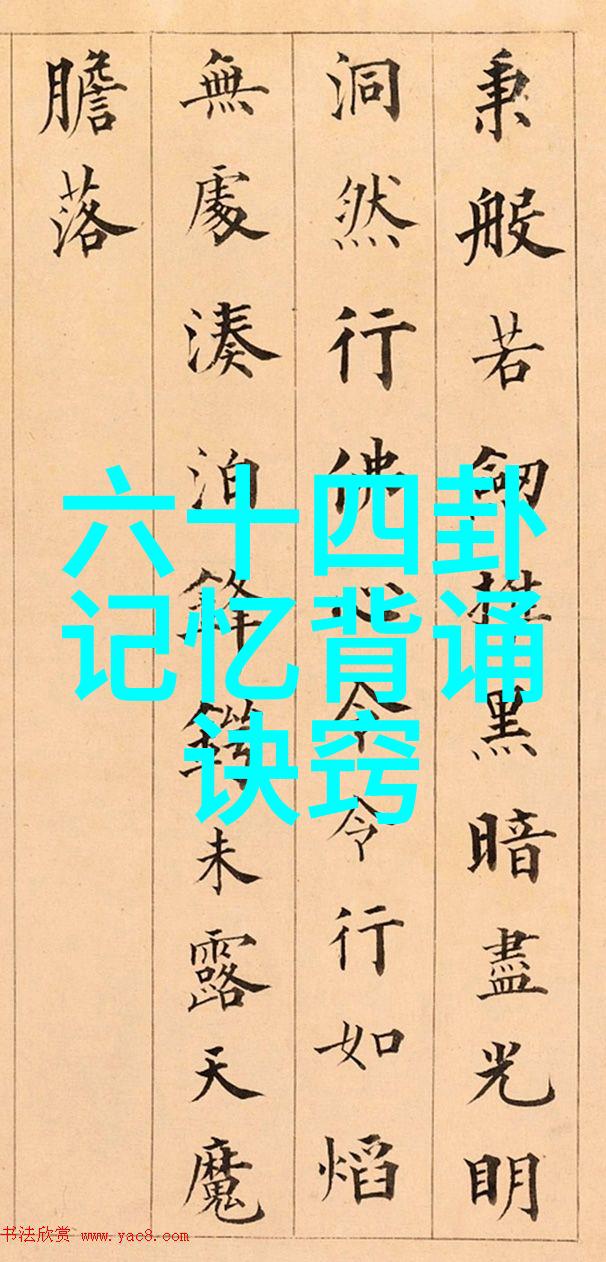 秉般若劒摧黑暗盡光明
洞然行佛心令令行如熖
無處湊泊鋒鍔未露天魔
膽落
六十四卦
记忆背诵
诀窍
书法欣赏 www.yac8.com